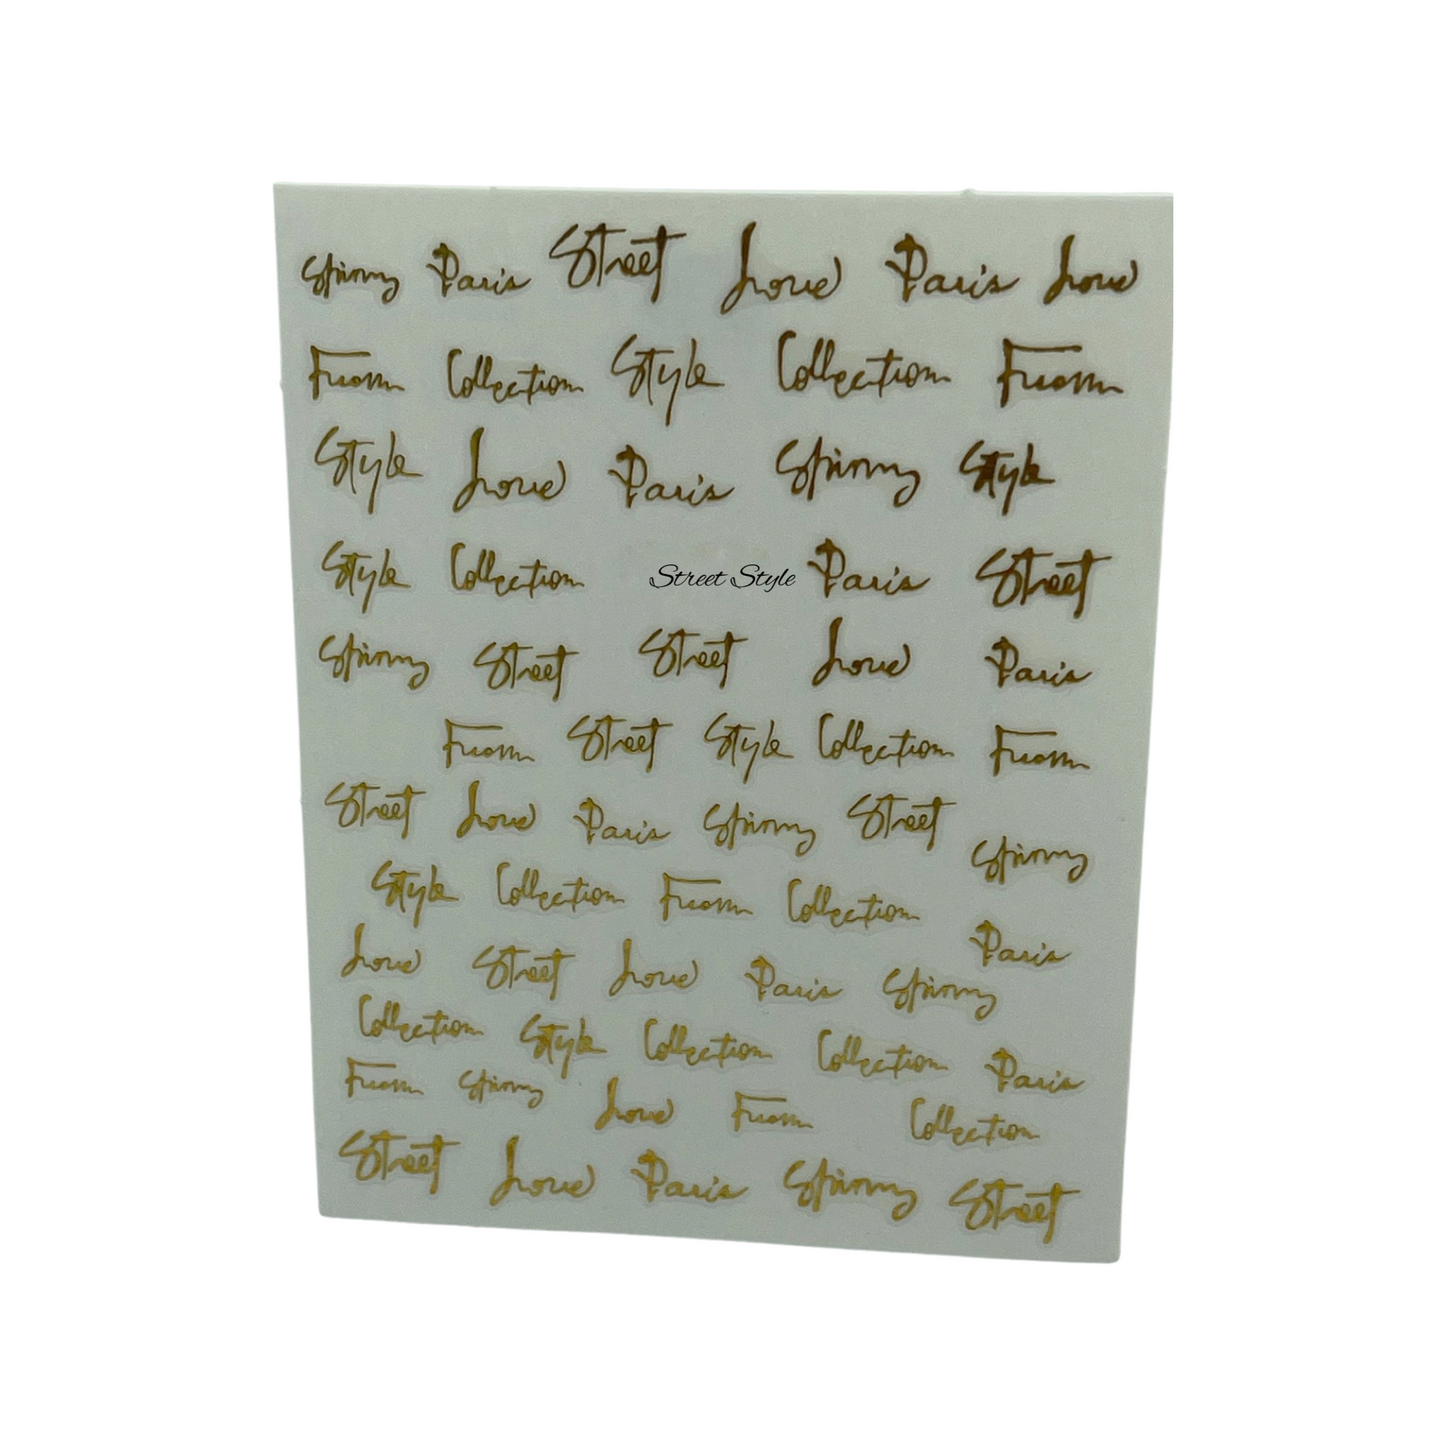 Spinny Paris Street Love Paris Love
From Collection Style Collection From
Style Love Paris Spinny Style
Style Collection Street Style Paris Street
Spinny Street Street Love Paris
From Street Style Collection From
Street Love Paris Spinny Street
Spinny
Style Collection From Collection
Paris
Love Street Love Paris Spinny
Collection Style Collection Collection Paris
From Spinny Love From Collection
Street Love Paris Spinny Street